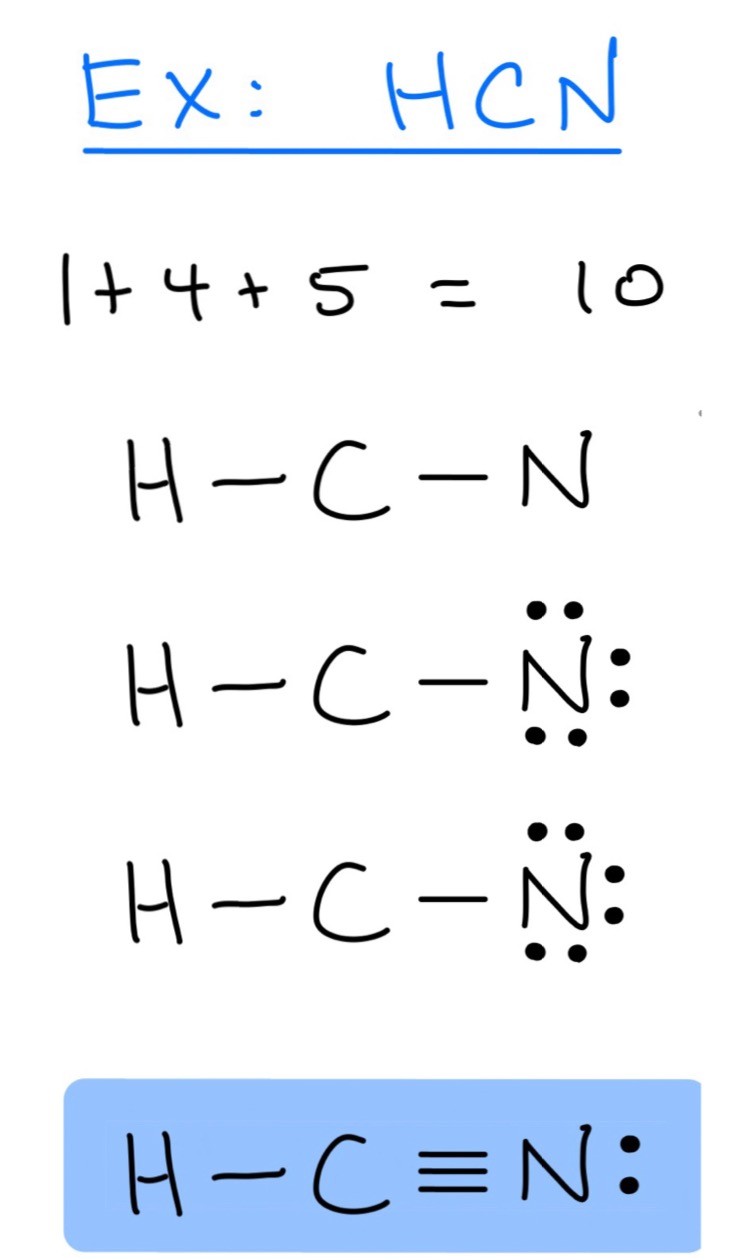 Ex: HCN
1 + 4 + 5 = 10
H — C — N
H — C — N̤̈:
H — C — N̤̈:
H — C ≡ N: